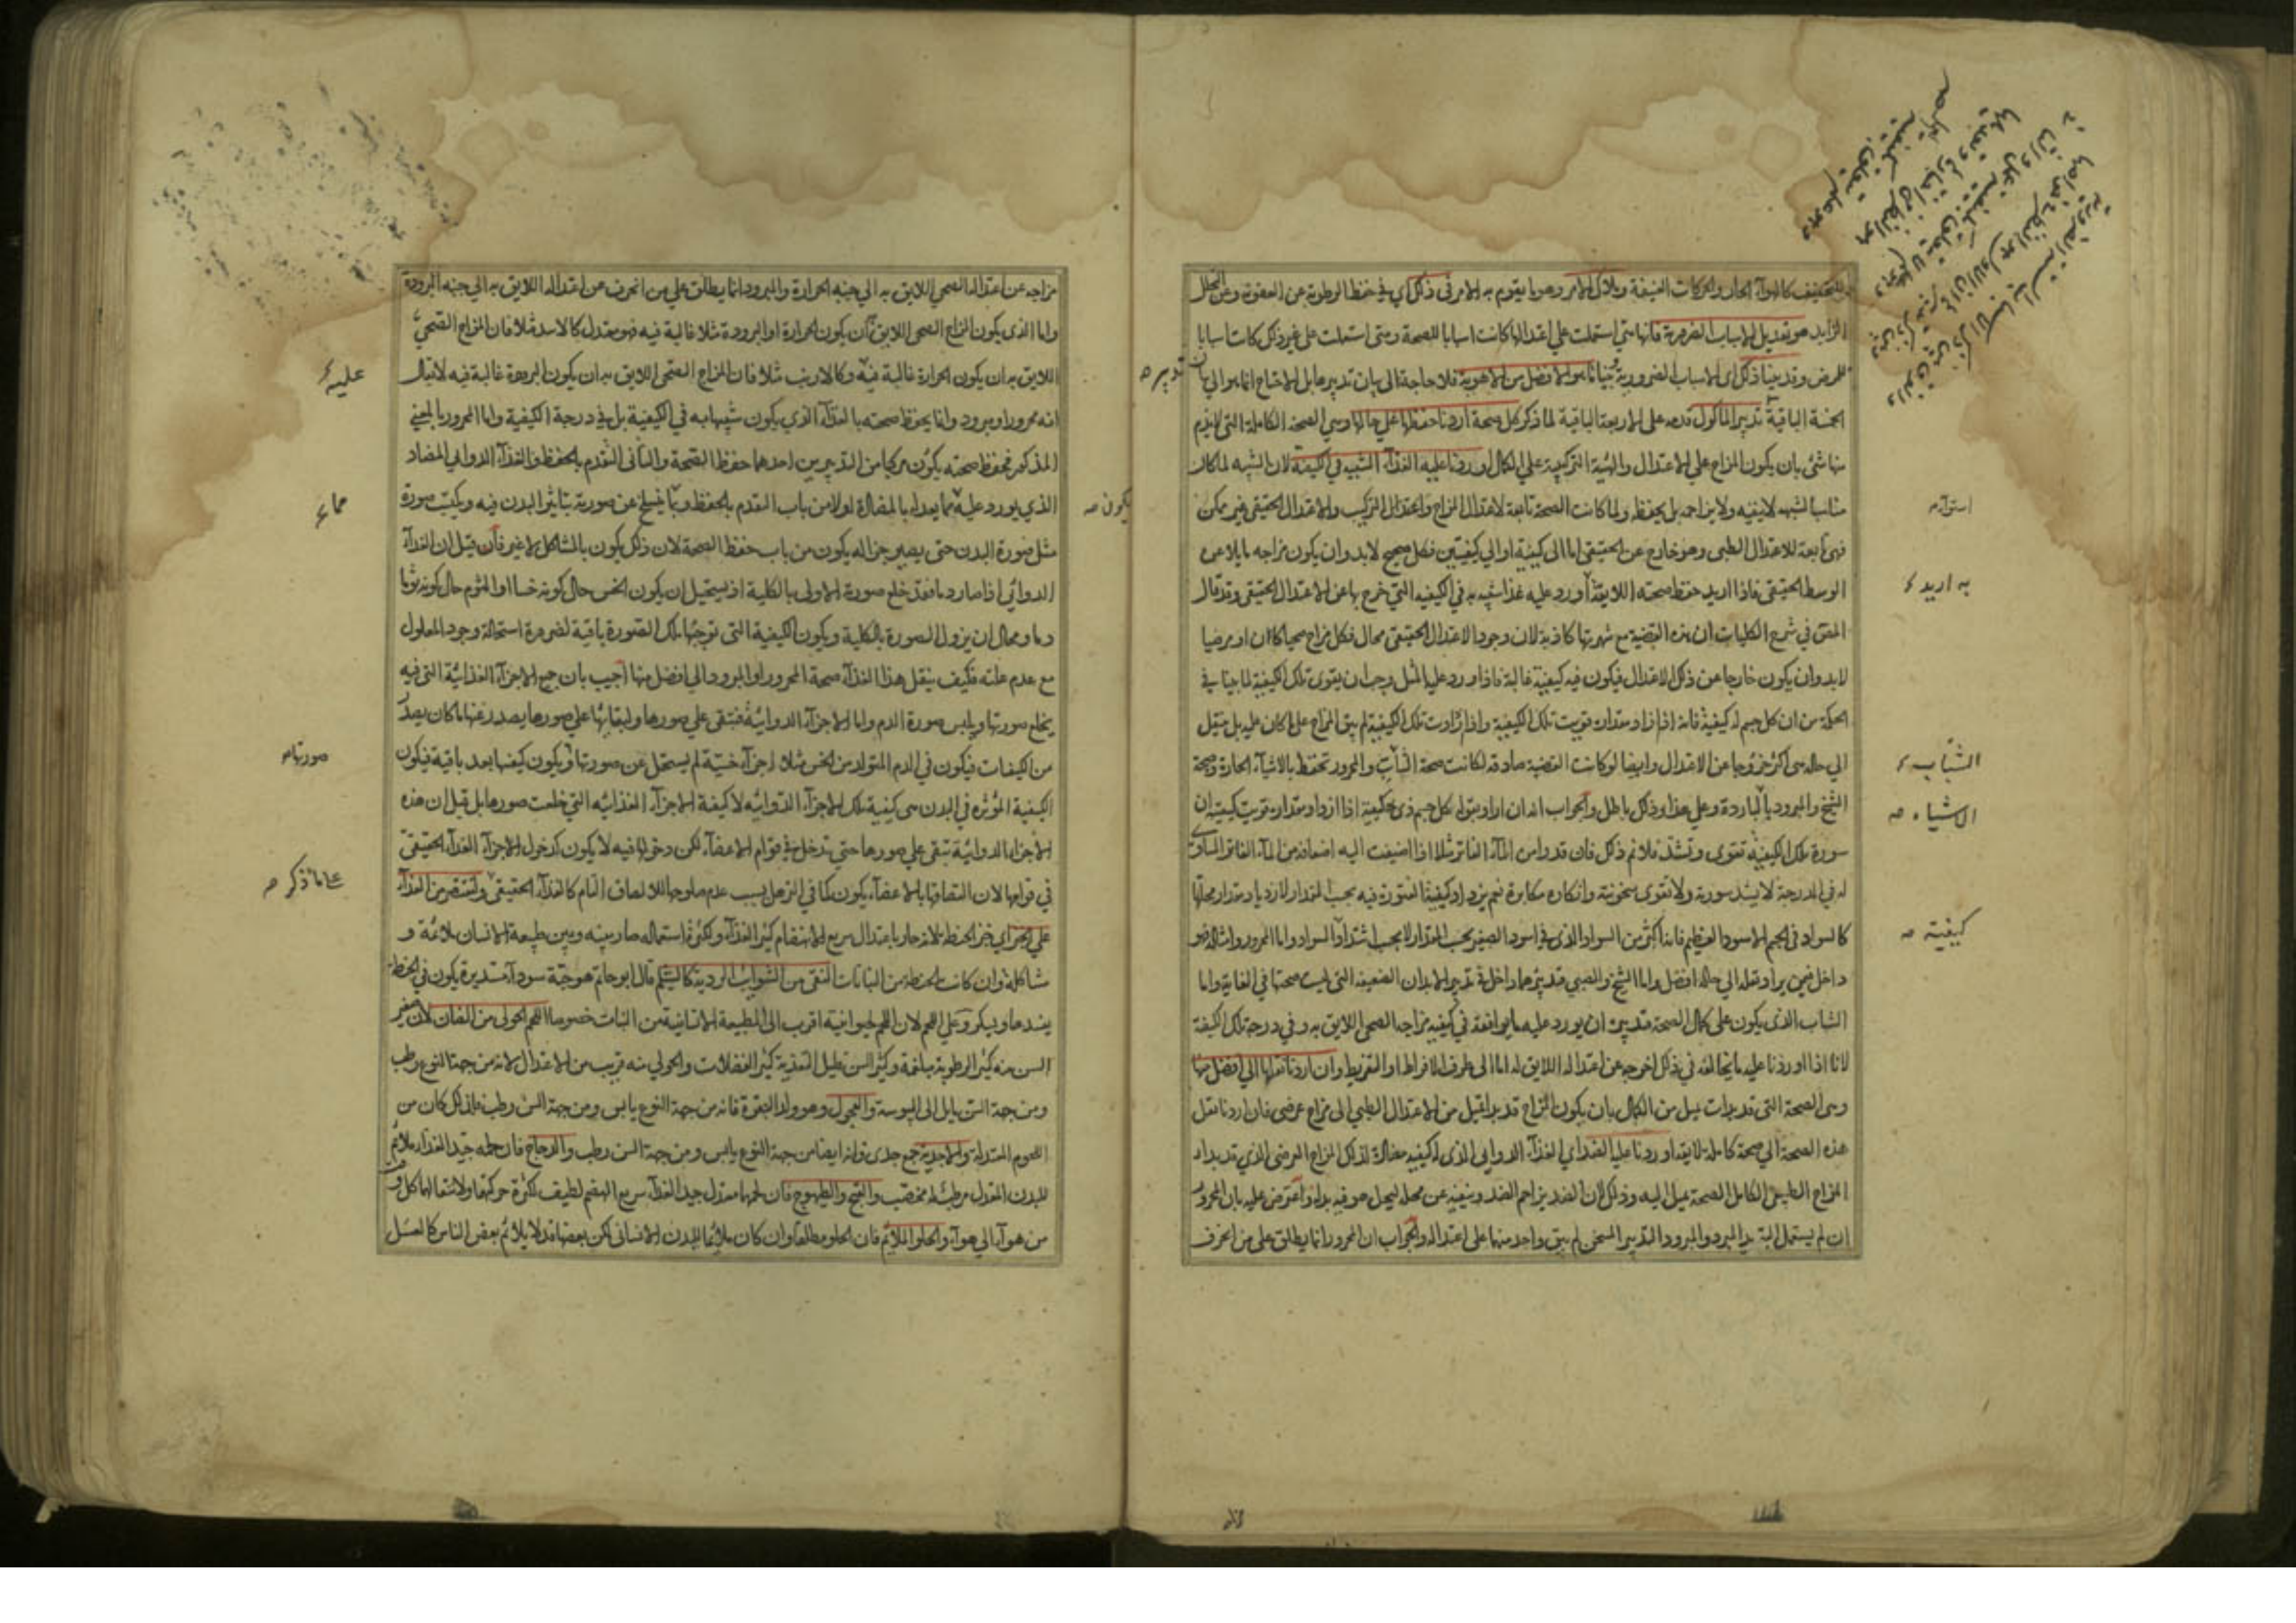 للتجفيف كالهوآء الحار والحركات العنيفة وملاك الامر وهو ما يقوم به الامر في ذلك اي في حفظ الرطوبة عن العفونة وعن التحلل
الزايد هو تعديل الاسباب الضرورية فانها متى استعملت على اعتدالها كانت اسبابا للصحة ومتى استعملت على غير ذلك كانت اسبابا
للمرض وقد بينا ذلك اى الاسباب الضرورية ما هو الافضل من الاهوية فلا حاجة الى بيان تدبيرها بل الاحتياج انما هو الى بيان
الخمسة الباقية تدبير المأكول قدمه على الاربعة الباقية لما ذكر كل صحة اردنا حفظها على حالها وهي الصحة الكاملة التى لا يذم
منها شئ بان يكون المزاج على الاعتدال والهيئة التركيبية على الكمال اوردنا عليه الغذآء الشبيه في الكيفية لان الشبه لما كان
مناسبا لشبهه لا ينفيه ولا يزاحمه بل يحفظه ولما كانت الصحة تابعة لاعتدال المزاج واعتدال التركيب والاعتدال الحقيقى غير ممكن
فهى تابعة للاعتدال الطبى وهو خارج عن الحقيقى اما الى كيفية او الى كيفيتين فكل صحيح لا بد وان يكون مزاجه مايلا عن
الوسط الحقيقى فاذا اريد حفظ صحته اللايقة اورد عليه غذا شبيه به في الكيفيه التي خرج بها عن الاعتدال الحقيقى وقد قال
المحقق في شرح الكليات ان هذه القضية مع شهرتها كاذبة لان وجود الاعتدال الحقيقى محال فكل مزاج صحيا كان او مرضيا
لا بد وان يكون خارجا عن ذلك الاعتدال فيكون فيه كيفية غالبة فاذا اورد عليها المثل وجب ان يتقوى تلك الكيفية لما بينا في
الحكمة من ان كل جسم له كيفية فانه اذا ازداد مقداره قويت تلك الكيفية واذا ازدادت تلك الكيفية لم يبق المزاج على ما كان عليه بل ينتقل
الى حاله هى اكثر خروجا عن الاعتدال وايضا لو كانت القضية صادقه لكانت صحة الشاب والمحرور تحفظ بالاشيآء الحارة وصحة
الشيخ والمبرود بالباردة وعلى هذا وذلك باطل والجواب انه ان اراد بقوله كل جسم ذى كيفية اذا ازداد مقداره قويت كيفيته ان
سورة تلك الكيفية تقوى وتشتد فلا نم ذلك فان قدرا من المآء الفاتر مثلا اذا اضيفت اليه اضعافه من المآء الفاتر المساوى
له في الدرجة لا يشتد سورته ولا تقوى سخونته وانكاره مكابرة نعم يزداد كيفية المتورة فيه بحسب المقدار لازدياد مقدار محلها
كالسواد فى الجسم الاسود العظيم فانه اكثر من السواد الذى فى اسود الصغير بحسب المقدار لا بحسب اشتداد السواد واما المحرور وامثاله فهو
داخل فيمن يراد نقله الى حالة افضل واما الشيخ والصبي فتدبيرهما داخل في تدبير الابدان الضعيفه التى ليست صحتها في الغاية واما
الشاب الذى يكون على كمال الصحة فتدبيره ان يورد عليه ما يوافقه في كيفية مزاجه الصحى اللايق به وفي درجة تلك الكيفية
لانا اذا اوردنا عليه ما يخالفه في ذلك اخرجه عن اعتداله اللايق له اما الى طرف الافراط او التفريط وان اردنا نقلها الى افضل منها
وهى الصحة التى قد بدات تميل من الكمال بان يكون المزاج قد بدا يميل من الاعتدال الطبى الى مزاج عرضى فان اردنا نقل
هذه الصحة الى صحة كاملة لايقة اوردنا عليها الضد اي الغذآء الدوايى الذى له كيفيه مضادة لذلك المزاج العرضى الذي قد بدا
المزاج الكامل الصحة يميل اليه وذلك لان الضد يزاحم الضد وينفيه عن محله ليحل هو فيه بدله واعترض عليه بان المحرور
ان لم يستعمل التدبير المبرد والمبرود التدبير المسخن لم يبق واحد منهما على اعتداله والجواب ان المحرور انما يطلق على من انحرف
تدبيره
استوآء
به اريد
الشاب
الاشياء
كيفيته
مزاجه عن اعتداله الصحى اللايق به الى جنبه الحرارة والمبرود انما يطلق على من انحرف عن اعتداله اللايق به الى جنبه البرودة
واما الذى يكون المزاج الصحى اللايق به ان يكون الحرارة او البرودة مثلا غالبة فيه فهو معتدل كالاسد مثلا فان المزاج الصحى
اللايق به ان يكون الحرارة غالبة فيه وكالارنب مثلا فان المزاج الصحى اللايق به ان يكون البرودة غالبة فيه لا يقال
انه محرور او مبرود وانما يحفظ صحته بالغذآء الذى يكون شبيها به في الكيفية بل في درجة الكيفية واما المحرور بالمعنى
المذكور فحفظ صحته يكون مركبا من التدبيرين احدهما حفظ الصحة والثانى التقدم بالحفظ والغذآء الدوايى المضاد
الذي يورد عليه مما يعد له بالمضادة اولا من باب التقدم بالحفظ وبما ينسلخ عن صورته بتاثير البدن فيه ويكتسب صورة
مثل صورة البدن حتى يصير جزاله يكون من باب حفظ الصحة لان ذلك يكون بالمشاكل لا غير فان قيل ان الغذآء
الدوائي اذا صار دما فقد خلع صورته الاولى بالكلية اذ يستحيل ان يكون الخس حال كونه خسا او الثوم حال كونه ثوما
دما ومحال ان يزول الصورة بالكلية ويكون الكيفية التى توجبها تلك الصورة باقية لضرورة استحالة وجود المعلول
مع عدم علته فكيف ينقل هذا الغذآء صحة المحرور او المبرود الى افضل منها اجيب بان جميع الاجزآء الغذائية التى فيه
يخلع صورتها ويلبس صورة الدم واما الاجزآء الدوائية فتبقى على صورها ولبقائها على صورها يصدر عنها ما كان يصدر
من الكيفيات فيكون في الدم المتولد من الخس مثلا اجزآء خسية لم يستحل عن صورتها ويكون كيفها بعد باقية فيكون
الكيفية المؤثره في البدن هى كيفية تلك الاجزآء الدوائيه لا كيفية الاجزآء الغذائيه التى خلعت صورها بل قيل ان هذه
الاجزآء الدوائية تبقى على صورها حتى تدخل في قوام الاعضآء لكن دخولها فيه لا يكون كدخول الاجزآء الغذآء الحقيقى
في قوامها لان التصاقها بالاعضآء يكون كما في الترهل بسبب عدم صلوحها للالصاق التام كالغذآء الحقيقى وليقتصر من الغذآء
على الخبز اي خبز الحنطة لانه حار باعتدال سريع الانهضام كثير الغذآء ولكثرة استعماله صار بينه وبين طبيعة الانسان ملائمة و
مشاكلة وان كانت الحنطة من النباتات النقى من الشوايب الردية كالشيلم قال ابو حاتم هو حبة سودآء مستديرة يكون في الحنطة
يفسدها ويسكر وعلى اللحم لان اللحم لحيوانية اقرب الى الطبيعة الانسانية من النبات خصوصا اللحم الحولى من الضان لان صغير
السن منه كثير الرطوبة بلغمه وكثير السن قليل التغذية كثير الفضلات والحولي منه قريب من الاعتدال لانه من جهة النوع رطب
ومن جهة السن مايل الى اليبوسة والعجول وهو ولد البقرة فانه من جهة النوع يابس ومن جهة السن رطب فلذلك كان من
اللحوم المعتدلة والاجدية جمع جدى فانه ايضا من جهة النوع يابس ومن جهة السن رطب والدجاج فان لحمه جيد الغذآء ملائم
للبدن المعتدل مرطب له مخصب والقبج والطيهوج فان لحمها معتدل جيد الغذآء سريع الهضم لطيف لكثرة حركتها ولانتقالها كل وقت
من هوآء الى هوآء والحلو الملائم فان الحلو مطلقا وان كان ملائما للبدن الانسانى لكن بعضها قد لا يلائم بعض الناس كالعسل
عليه
يكون
مما
صورتها
على ما ذكر